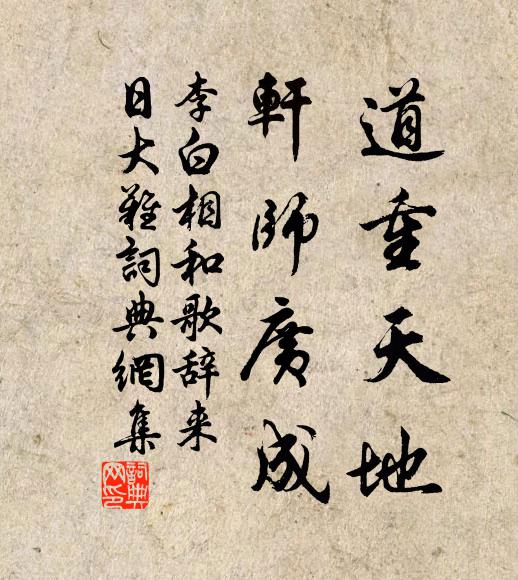 道重天地
軒師廣成
李白相和歌辞来
日大難詞典網集
詞典
网印